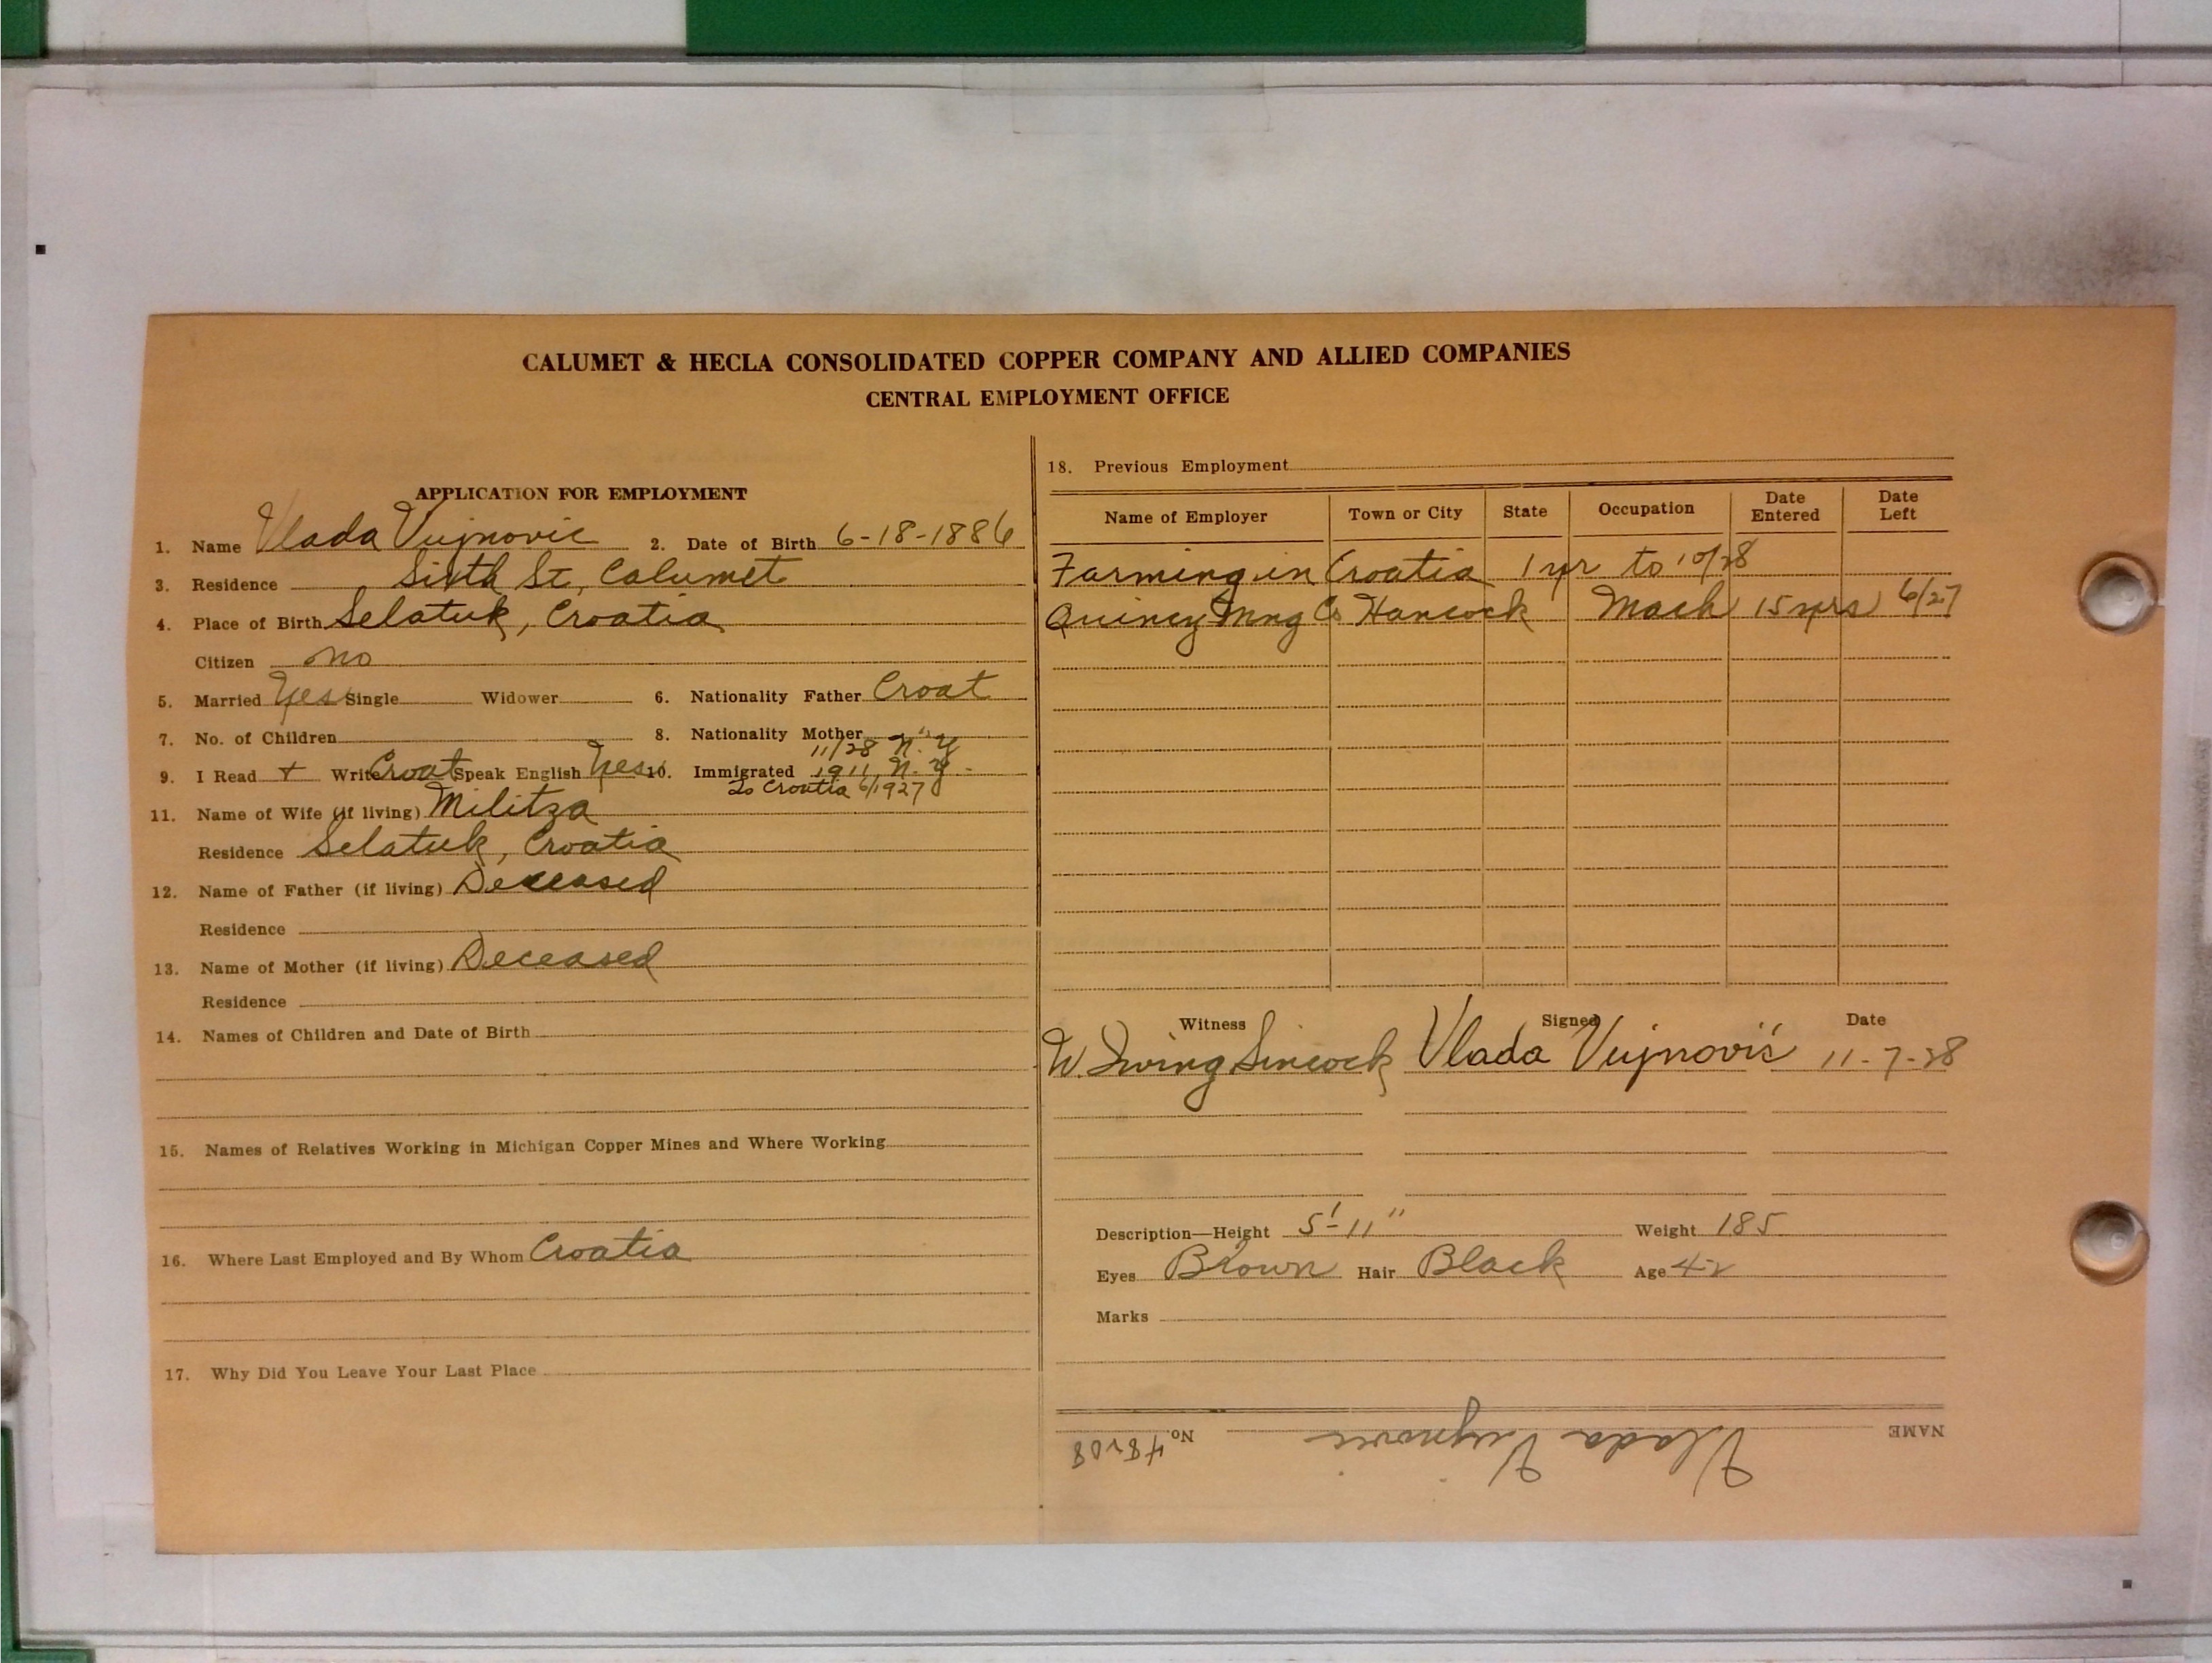 CALUMET & HECLA CONSOLIDATED COPPER COMPANY AND ALLIED COMPANIES
CENTRAL EMPLOYMENT OFFICE
APPLICATION FOR EMPLOYMENT
1. Name Vlada Vujnovic 2. Date of Birth 6-18-1886
3. Residence Sixth St, Calumet
4. Place of Birth Selatuk, Croatia
Citizen no
5. Married Yes Single Widower 6. Nationality Father Croat
7. No. of Children 8. Nationality Mother "
11/28 N.Y
9. I Read + Write Croat Speak English Yes 10. Immigrated 1911, N.Y.
To Croatia 6/1927
11. Name of Wife (if living) Militza
Residence Selatuk, Croatia
12. Name of Father (if living) Deceased
Residence
13. Name of Mother (if living) Deceased
Residence
14. Names of Children and Date of Birth
15. Names of Relatives Working in Michigan Copper Mines and Where Working
16. Where Last Employed and By Whom Croatia
17. Why Did You Leave Your Last Place
18. Previous Employment
Name of Employer Town or City State Occupation Date Entered Date Left
Farming in Croatia 1 yr to 10/28
Quincy Mng Co Hancock Mach 15 yrs 6/27
Witness Signed Date
W. Irving Sincock Vlada Vujnović 11-7-28
Description—Height 5'-11" Weight 185
Eyes Brown Hair Black Age 42
Marks
NAME Vlada Vujnovic No. 48208